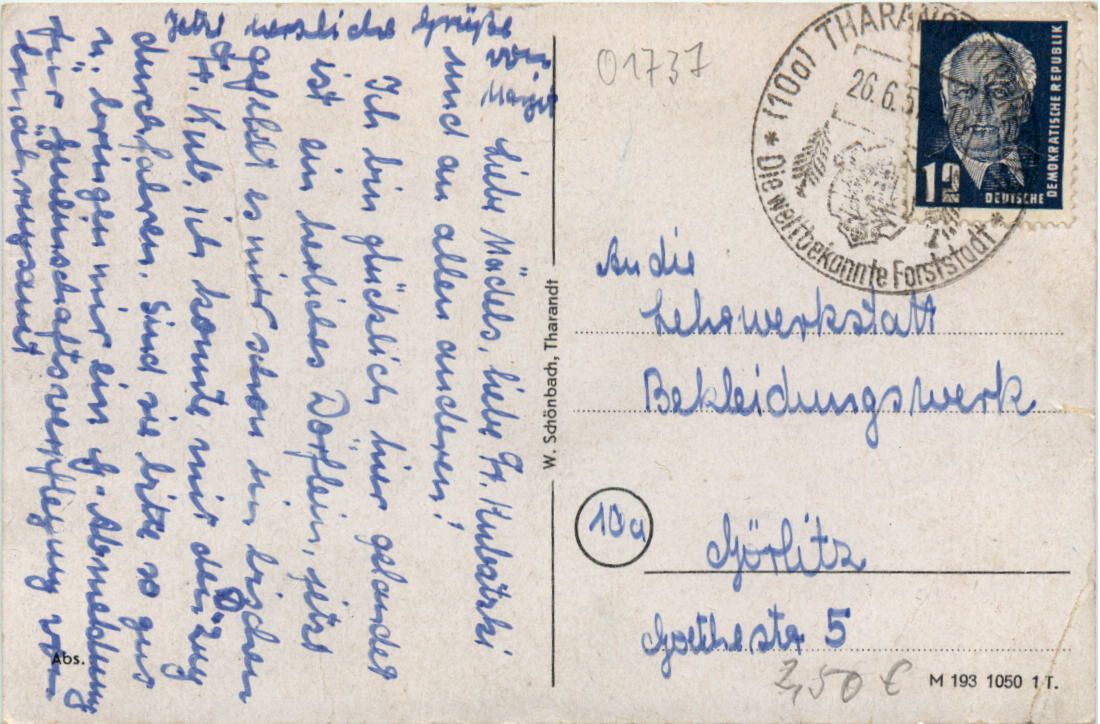 Liebe Mädels, liebe Fr. Kubatzki
und an allen anderen!
Ich bin glücklich hier gelandet
ist ein herliches Dörflein, jetzt
gefällt es mir schon ein bischen
Fr. Kub. ich konnte mit dem Zug
durchfahren. Sind sie bitte so gut
u. bringen mir ein Abmeldung
für Gemeinschaftsverpflegung vom
Jetzt herzliche Grüße
von
Margit
Abs.
W. Schönbach, Tharandt
01737
(10a) THARANDT
26.6.5
* Die weltbekannte Forststadt *
12
DEUTSCHE
DEMOKRATISCHE REPUBLIK
An die
Lehrwerkstatt
Bekleidungswerk
10a
Görlitz
Goethestr 5
3,50 €
M 193 1050 1 T.